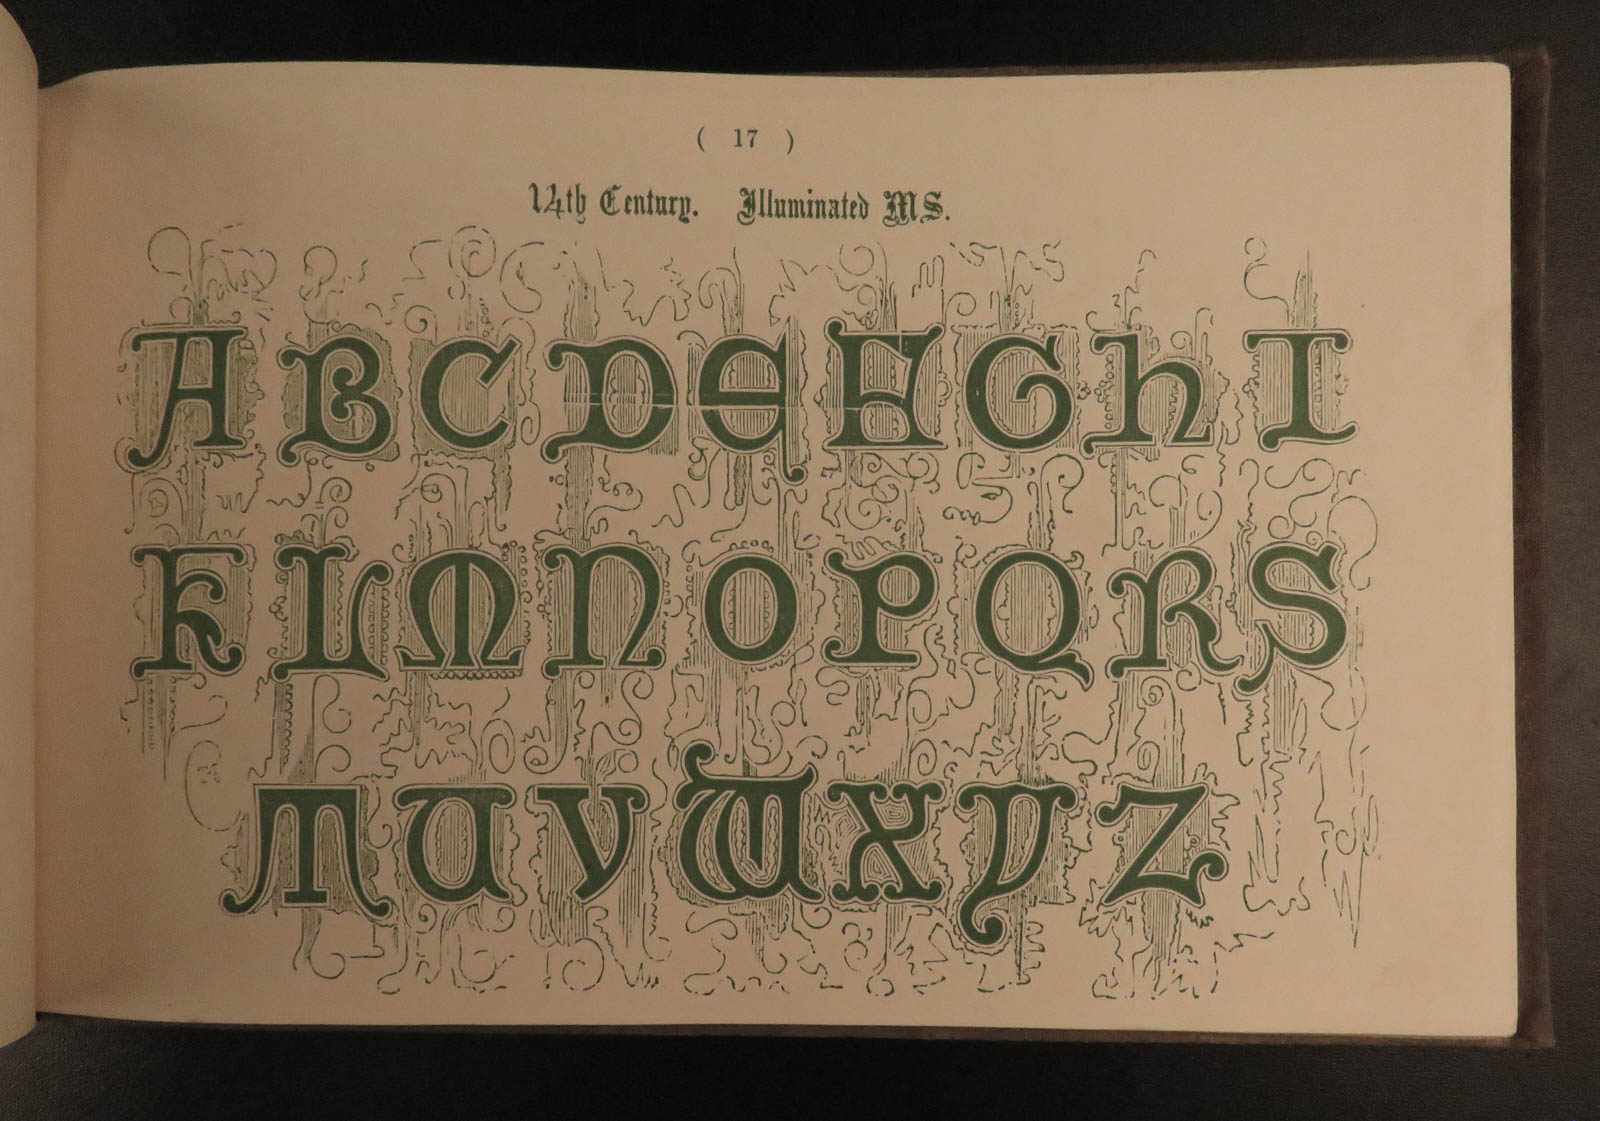 ( 17 )
14th Century. Illuminated MS.
A B C D E F G H I
K L M N O P Q R S
T U V W X Y Z